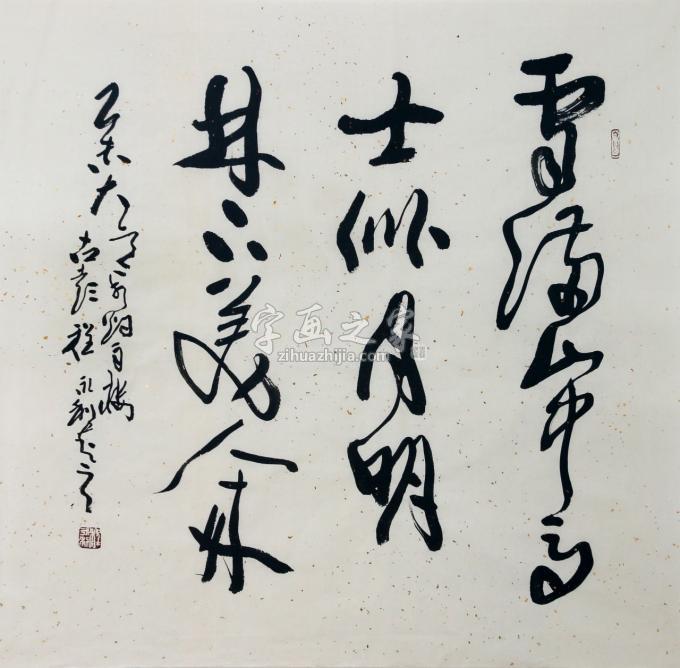 雪满山中高
士卧月明
林下美人来
乙未大
古彭程
字画之家
zihuazhijia.com